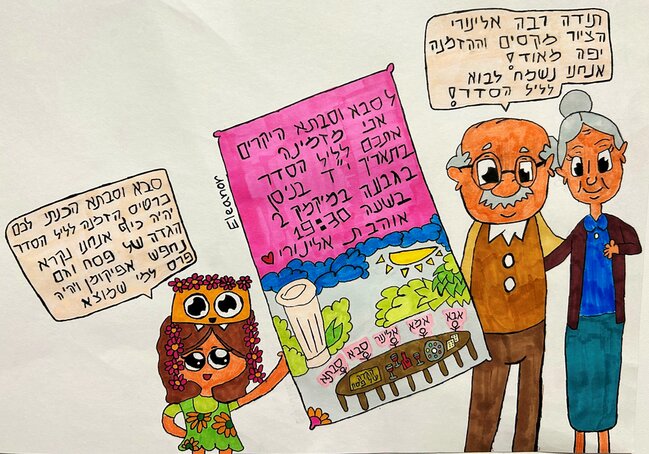 תודה רבה אלינורי
הציור מקסים וההזמנה
יפה מאוד!
אנחנו נשמח לבוא
לליל הסדר!
לסבא וסבתא היקרים
אני מזמינה
אתכם לליל הסדר
בתאריך י"ד בניסן
בגבעה במיקמק 2
בשעה 19:30
אוהבת אלינורי
Eleanor
סבא וסבתא הכנתי לכם
כרטיס הזמנה לליל הסדר
יהיה כיף אנחנו נקרא
הגדה של פסח וגם
נחפש אפיקומן ויהיה
פרס למי שמוצא
אבא
אמא
אלינור
סבא
סבתא